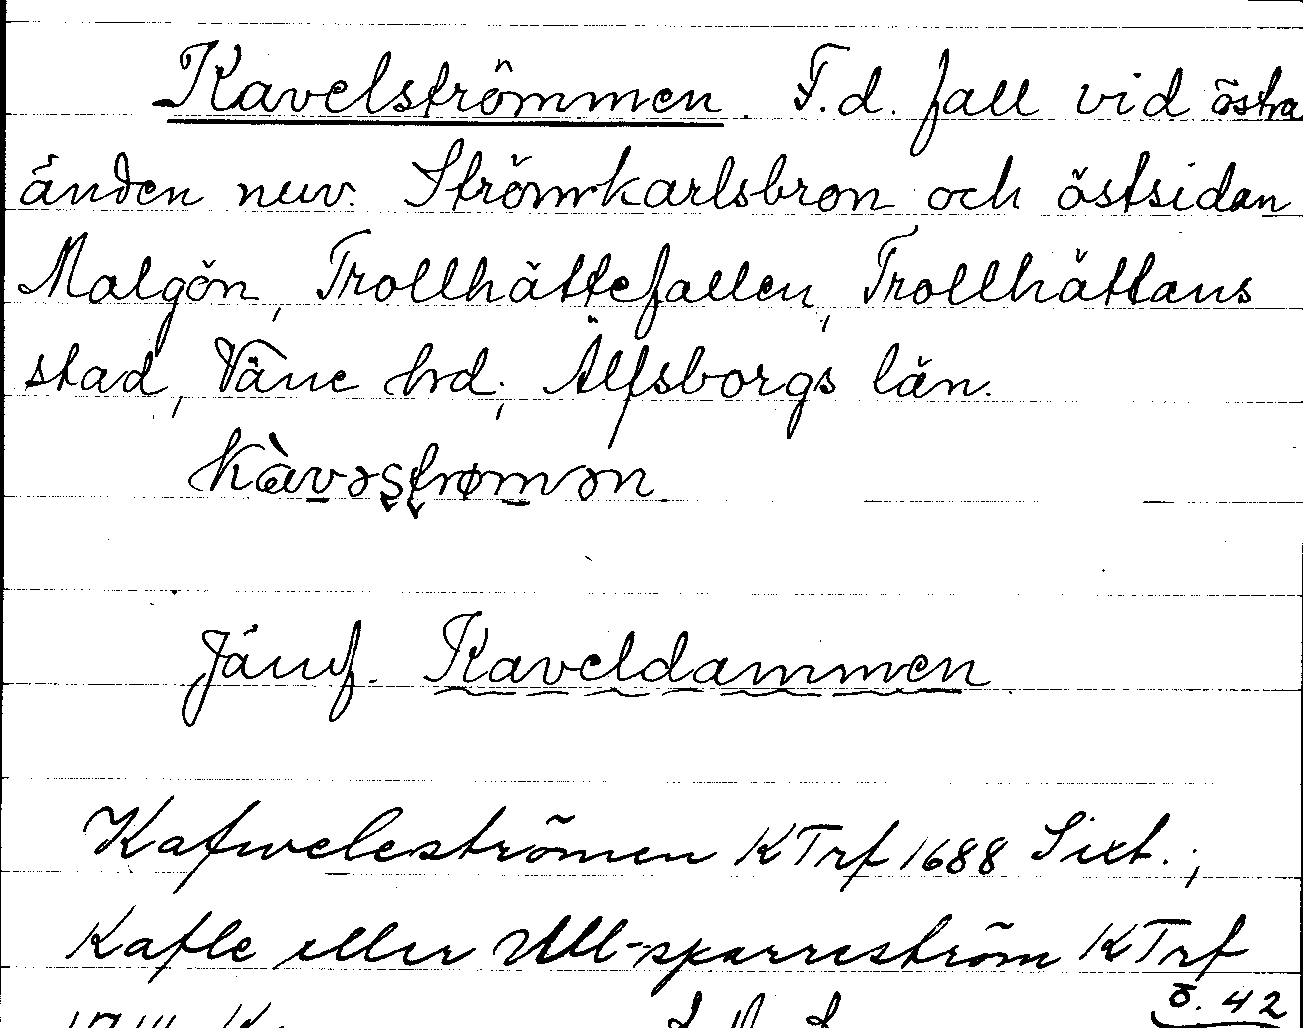 Kavelströmmen. F.d. fall vid östra
änden nuv. Strömkarlsbron och östsidan
Malgön, Trollhättefallen, Trollhättans
stad, Väne hd; Älfsborgs län.
kàvəstrømən
Jämf. Kaveldammen
Kafweleströmen KTrf 1688 Sixt.;
Kafle eller Ull-sparreström KTrf
ö. 42